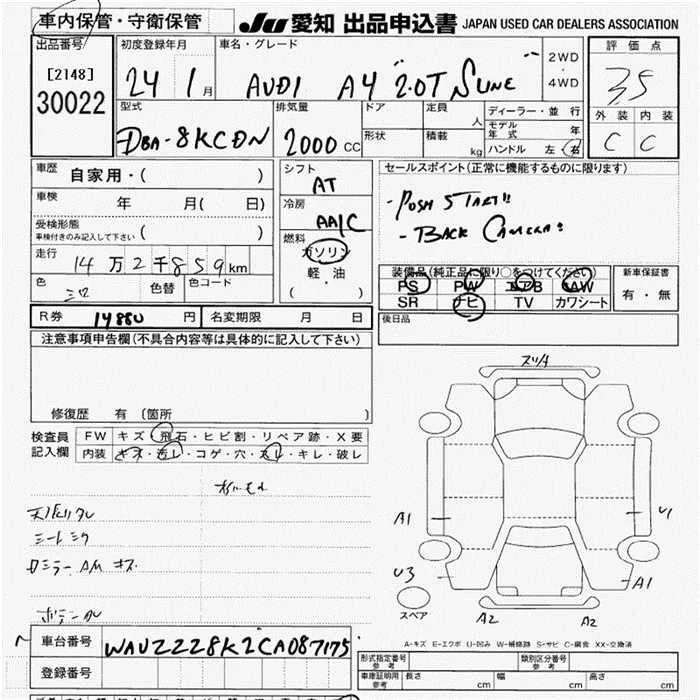 車内保管・守衛保管 JU 愛知 出品申込書 JAPAN USED CAR DEALERS ASSOCIATION
出品番号 初度登録年月 車名・グレード 2WD 評価点
[2148] 24 1月 AUDI A4 2.0T 4WD 3.5
30022 外装 内装
型式 排気量 ドア 定員 人 ディーラー・並行 C C
DBA-8KCDN 2000cc 形状 積載 kg モデル年式 年
ハンドル 左・右
車歴 自家用・( ) シフト AT セールスポイント(正常に機能するものに限ります)
車検 年 月( 日) 冷房 AA/C - PUSH START!!
受検形態 ( ) - BACK CAMERA!
車検付きのみ記入して下さい 燃料 ガソリン
走行 14万2千859km 軽・油 装備品(純正品に限り○をつけてください) 新車保証書
色 色替 色コード ( ・ ) PS PW エアB AW 有・無
SR ナビ TV カワシート
R券 14880円 名変期限 月 日 後日品
注意事項申告欄(不具合内容等は具体的に記入して下さい)
修復歴 有 (箇所 )
検査員 FW キズ・飛石・ヒビ割・リペア跡・X要
記入欄 内装 キズ・汚レ・コゲ・穴・スレ・キレ・破レ
A1 U1
U3 A1
スペア A2 A2
車台番号 WAUZZZ8K2CA087175 A-キズ E-エクボ U-凹み W-補修跡 S-サビ C-腐食 XX-交換済
登録番号 形式指定番号 参考 類別区分番号 参考
車庫証明用 参考 長さ cm 幅 cm 高さ cm